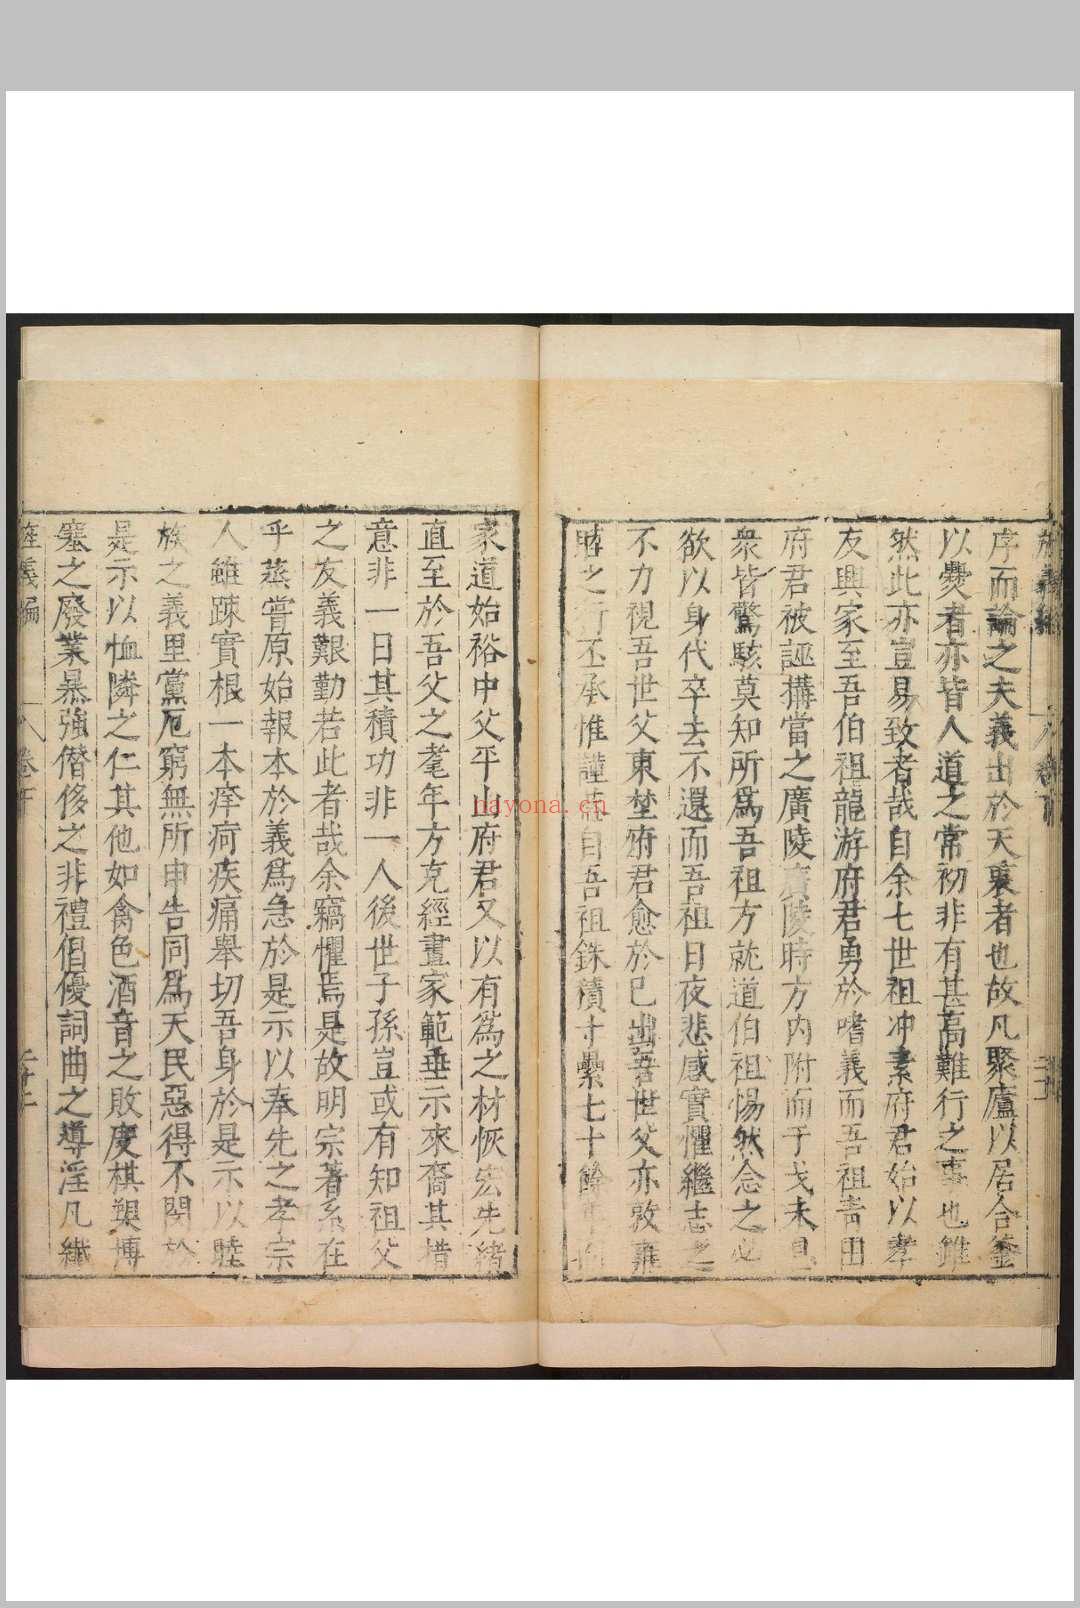 序而論之夫義出於天衷者也故凡聚廬以居合釜
以爨者亦皆人道之常初非有甚高難行之事也雖
然此亦豈易致者哉自余七世祖冲素府君始以孝
友興家至吾伯祖龍游府君勇於嗜義而吾祖青田
府君被誣搆當之廣陵廣陵時方內附而干戈未息
衆皆驚駭莫知所為吾祖方就道伯祖惕然念之必
欲以身代卒去不還而吾祖日夜悲感實懼繼志之
不力視吾世父東埜府君愈於已出吾世父亦敦雍
睦之行丕承惟謹蓋自吾祖銖積寸纍七十餘
家道始裕中父平山府君又以有為之材恢宏先緒
直至於吾父之耄年方克經畫家範垂示來裔其措
意非一日其積功非一人後世子孫豈或有知祖父
之友義艱勤若此者哉余竊懼焉是故明宗著系在
乎蒸嘗原始報本於義為急於是示以奉先之孝宗
人雖踈實根一本痒痾疾痛舉切吾身於是示以睦
族之義里黨厄窮無所申告同為天民惡得不閔於
是示以恤隣之仁其他如禽色酒音之敗度棋槊博
塞之廢業暴強僭侈之非禮倡優詞曲之導淫凡纖
旌義編 卷下 二十二
hayona.cn